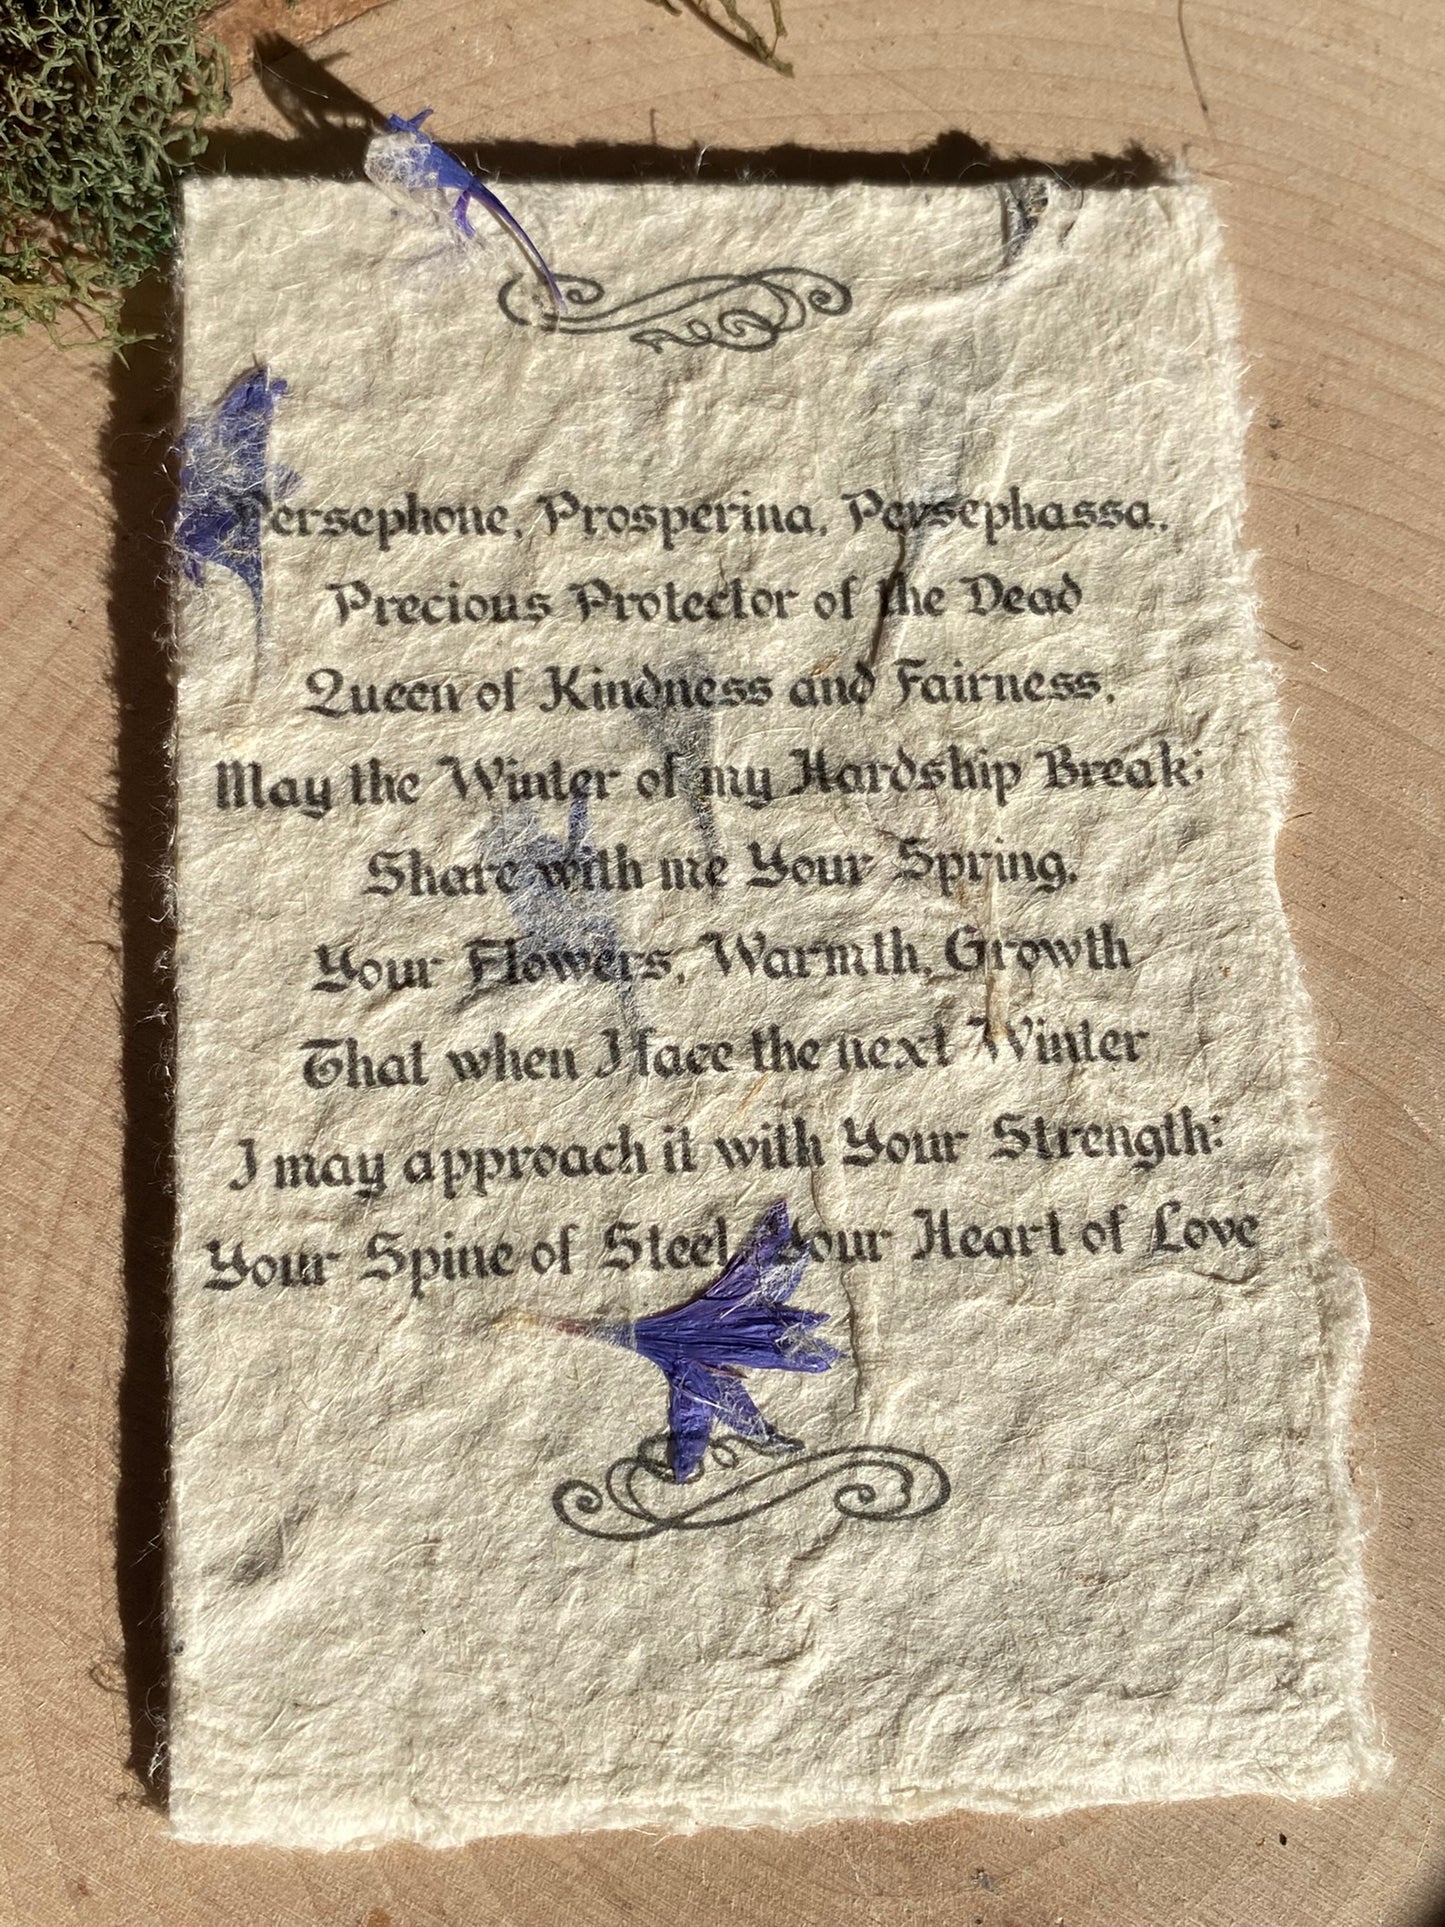 Persephone, Prosperina, Persephassa,
Precious Protector of the Dead
Queen of Kindness and Fairness,
May the Winter of my Hardship Break;
Share with me Your Spring,
Your Flowers, Warmth, Growth
That when I face the next Winter
I may approach it with Your Strength:
Your Spine of Steel, Your Heart of Love